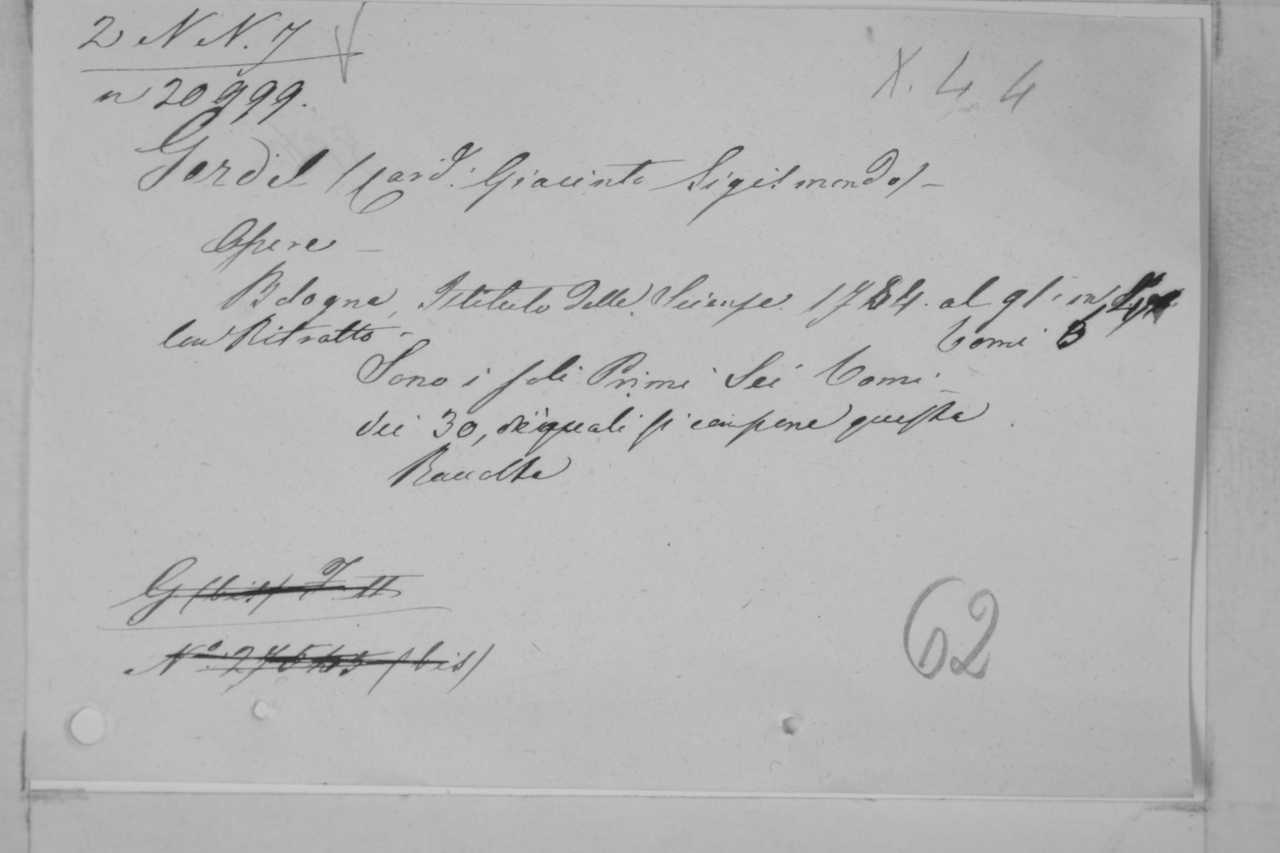 2 N N. 7
n 20999.
X. 44
Gerdil (Card. Giacinto Sigismondo) -
Opere -
Bologna, Istituto delle Scienze 1784. al gli in
con Ritratto - Tomi 3
Sono i soli Primi Sei Tomi
dei 30, dei quali si compone questa
Raccolta
G (bis)
N.º (bis)
62